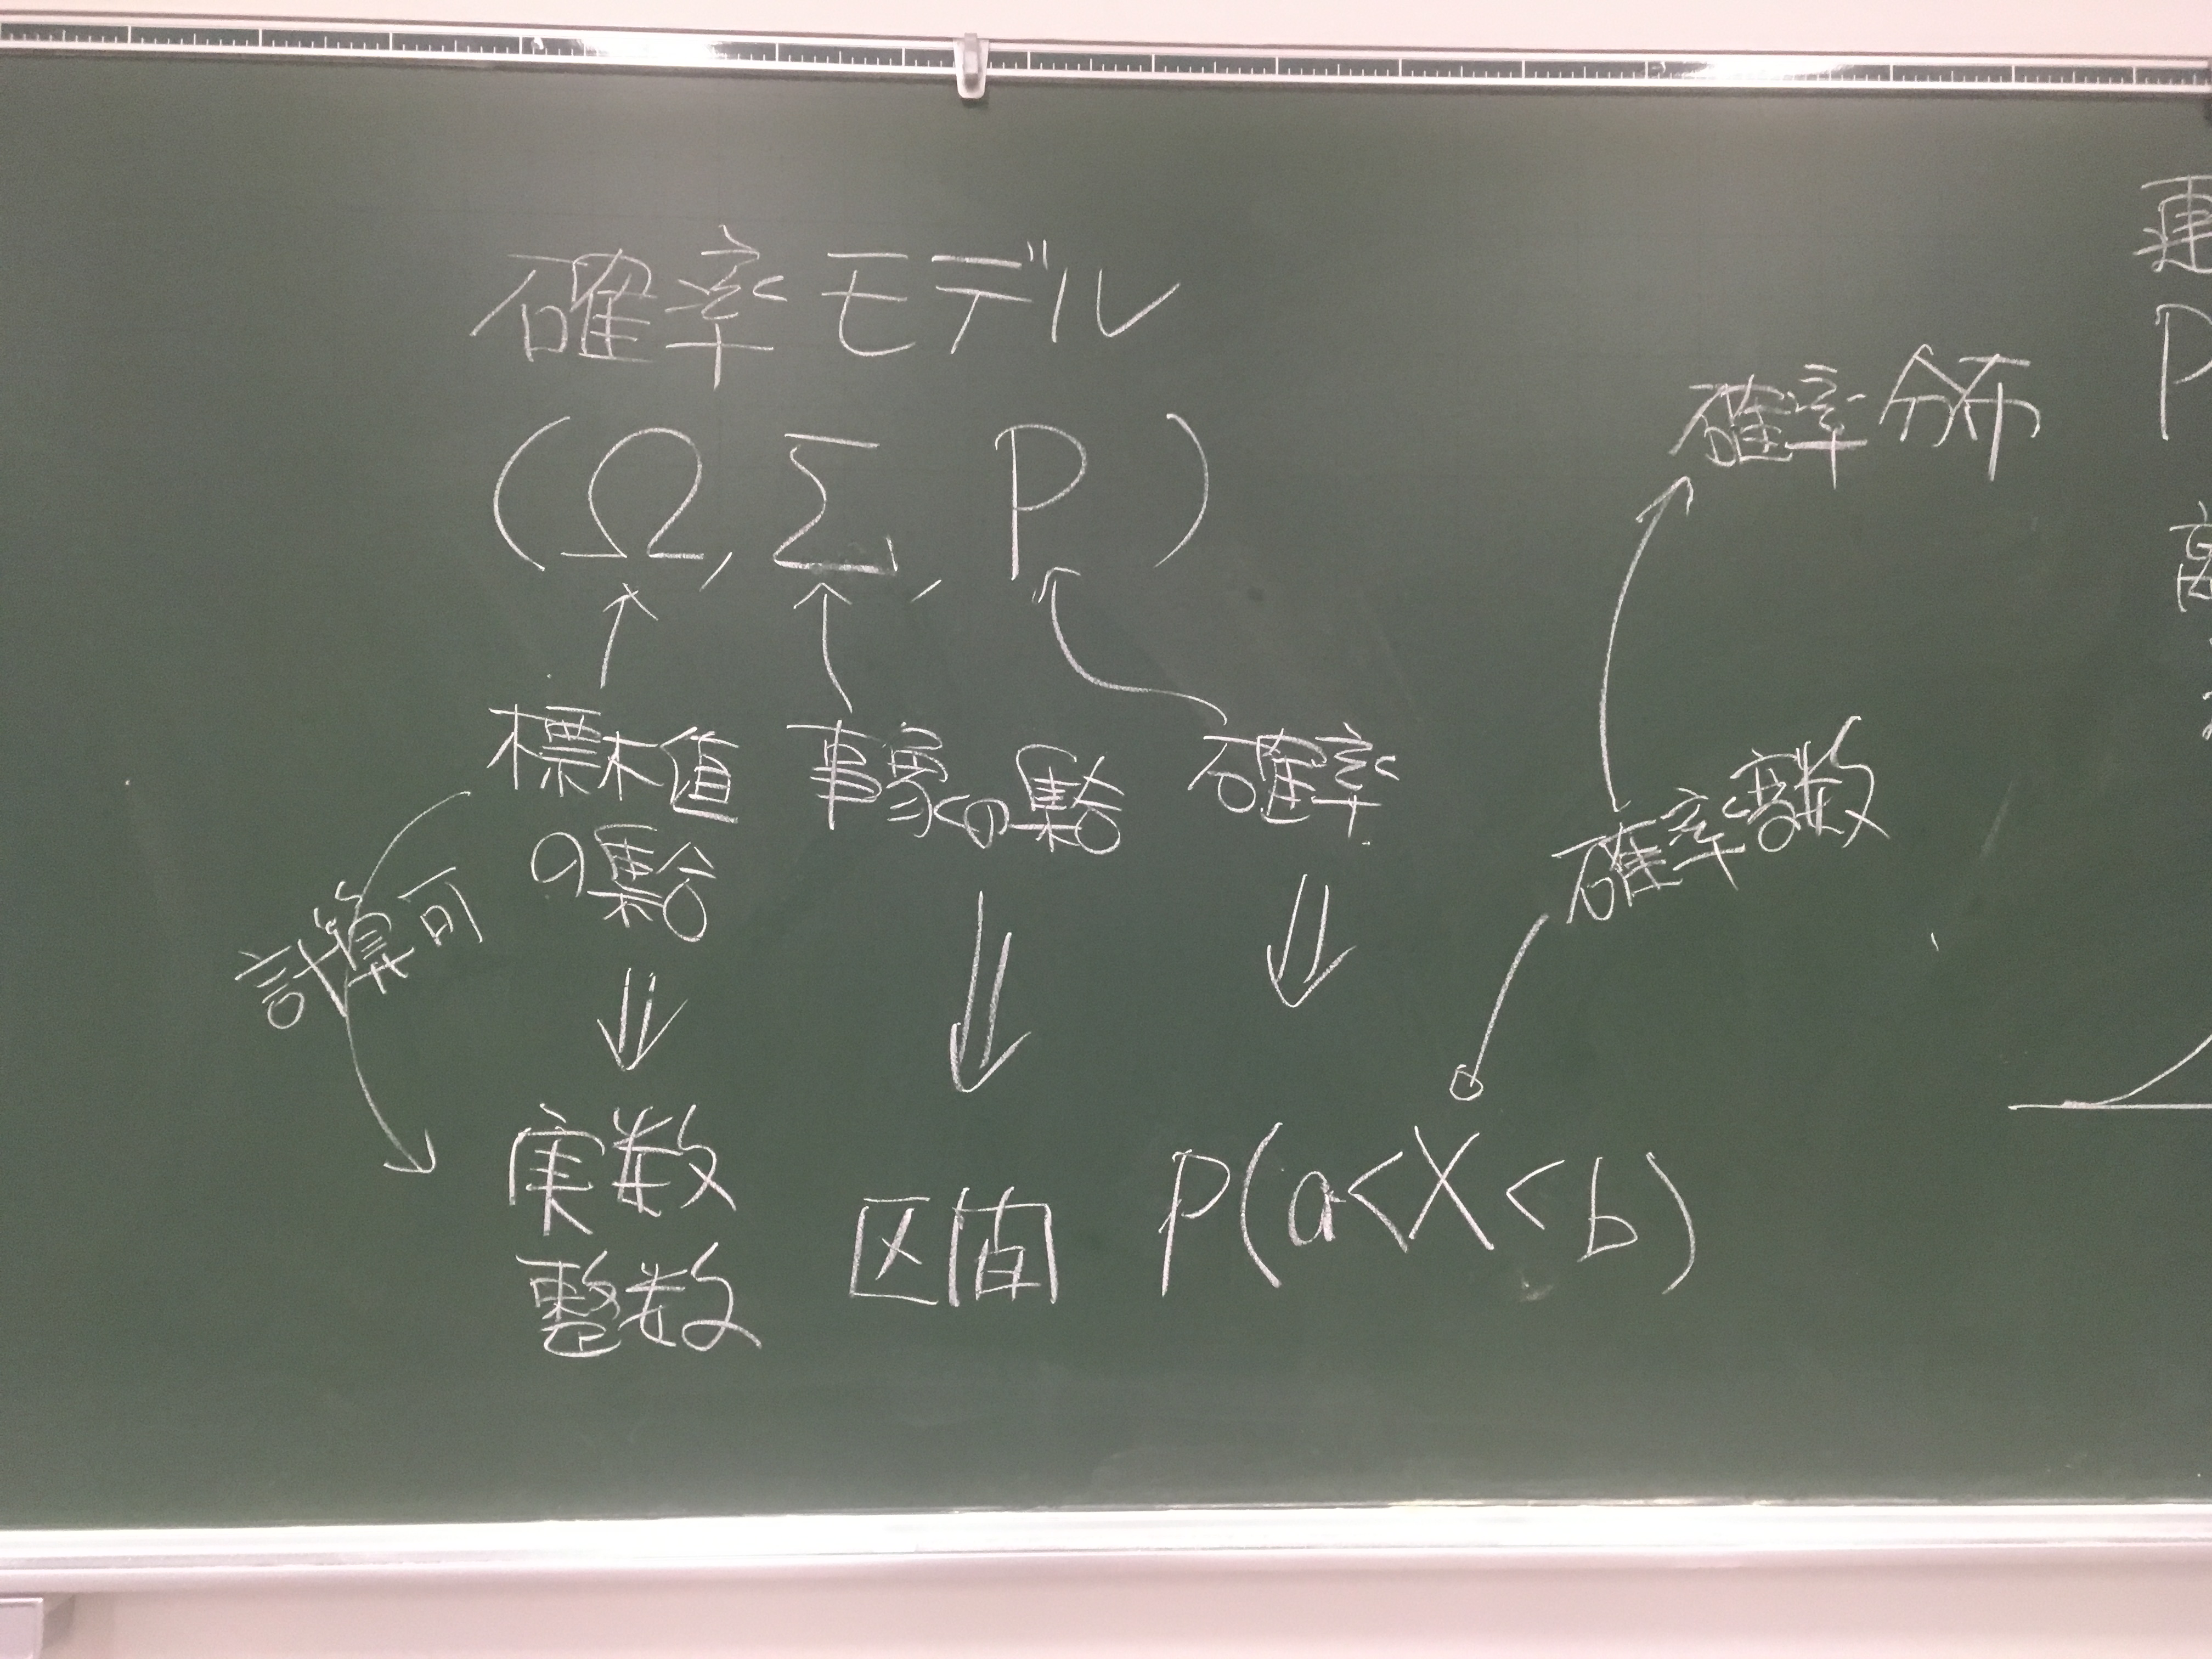 確率モデル
(Ω, Σ, P)
標本値
の集合
事象の集合
確率
計算可
実数
整数
区間
P(a<X<b)
確率分布
確率変数
P